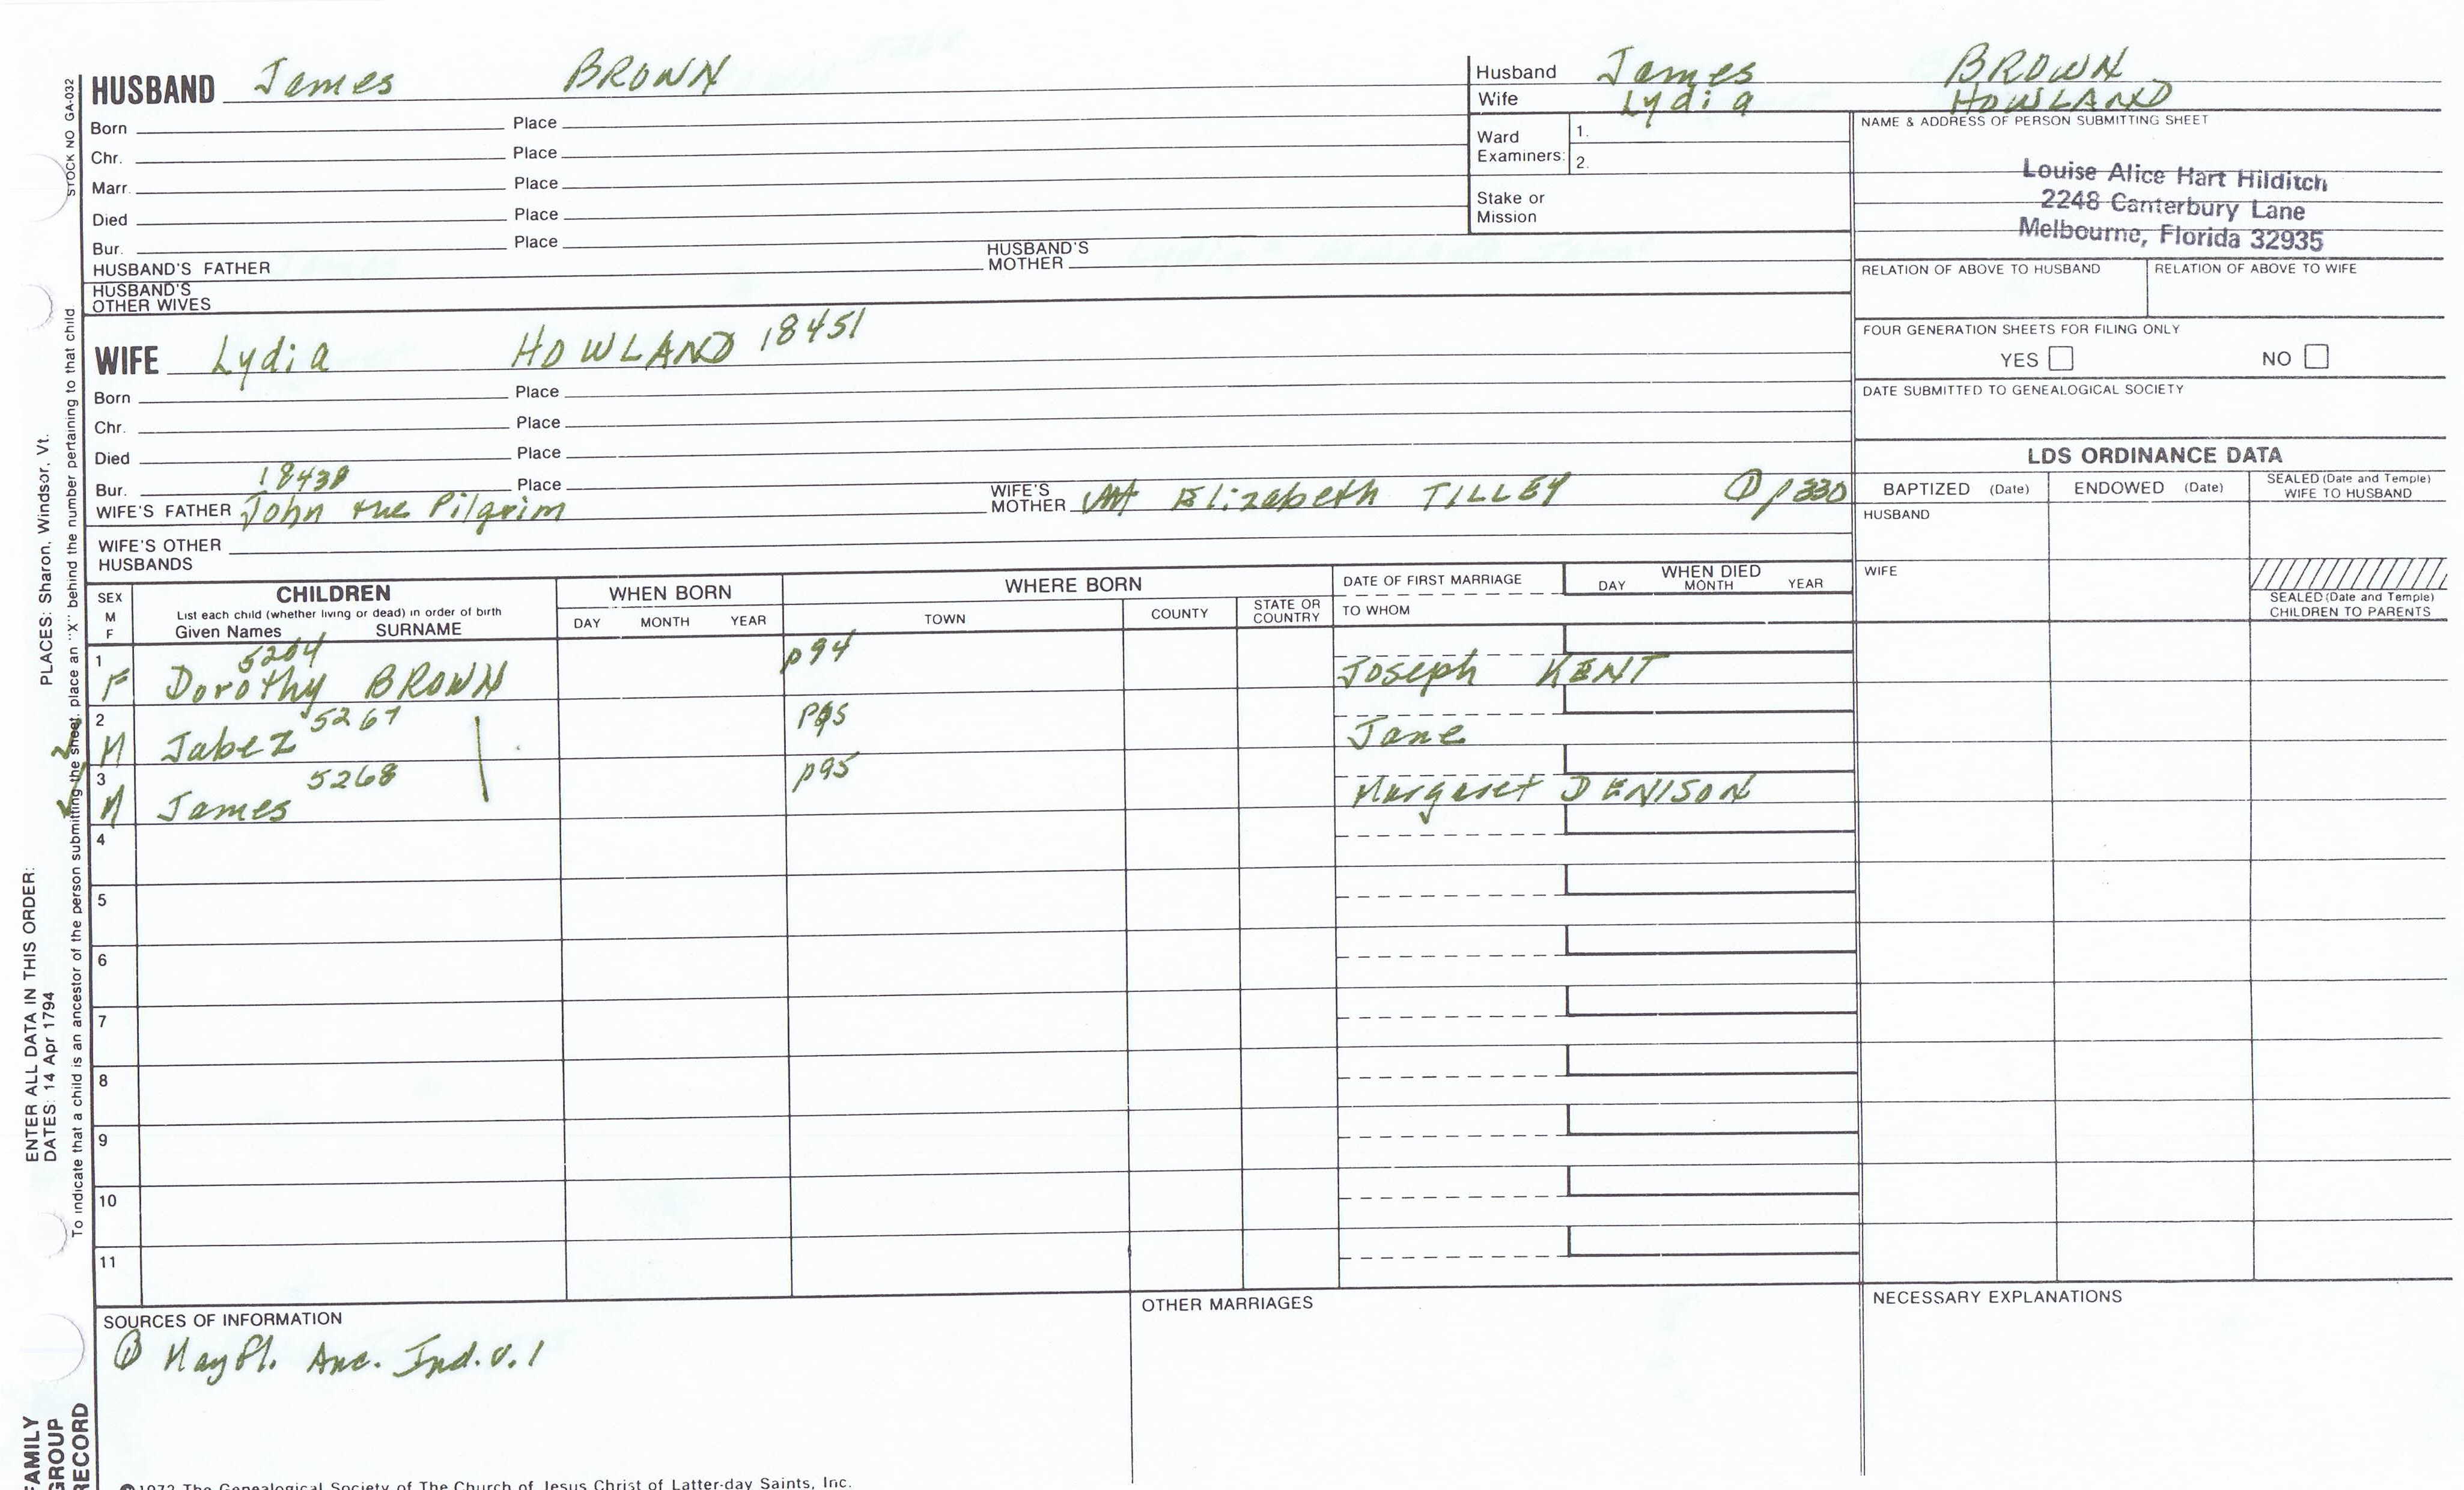 HUSBAND James BROWN
Born Place
Chr. Place
Marr. Place
Died Place
Bur. Place
HUSBAND'S FATHER HUSBAND'S MOTHER
HUSBAND'S OTHER WIVES
Husband James BROWN
Wife Lydia HOWLAND
Ward Examiners: 1.
2.
Stake or Mission
NAME & ADDRESS OF PERSON SUBMITTING SHEET
Louise Alice Hart Hilditch
2248 Canterbury Lane
Melbourne, Florida 32935
RELATION OF ABOVE TO HUSBAND RELATION OF ABOVE TO WIFE
FOUR GENERATION SHEETS FOR FILING ONLY
YES NO
DATE SUBMITTED TO GENEALOGICAL SOCIETY
WIFE Lydia HOWLAND 18451
Born Place
Chr. Place
Died Place
Bur. Place
WIFE'S FATHER John the Pilgrim WIFE'S MOTHER Elizabeth TILLEY ① p330
WIFE'S OTHER HUSBANDS
LDS ORDINANCE DATA
BAPTIZED (Date) ENDOWED (Date) SEALED (Date and Temple) WIFE TO HUSBAND
HUSBAND
WIFE
SEALED (Date and Temple) CHILDREN TO PARENTS
SEX M F
CHILDREN
List each child (whether living or dead) in order of birth
Given Names SURNAME
WHEN BORN
DAY MONTH YEAR
WHERE BORN
TOWN COUNTY STATE OR COUNTRY
DATE OF FIRST MARRIAGE
TO WHOM
WHEN DIED
DAY MONTH YEAR
1 F Dorothy BROWN 5264 p94 Joseph KENT
2 M Jabez 5267 p95 Jane
3 M James 5268 p95 Margaret DENISON
4
5
6
7
8
9
10
11
SOURCES OF INFORMATION
① MayFl. Anc. Ind. v. 1
OTHER MARRIAGES
NECESSARY EXPLANATIONS
©1972 The Genealogical Society of The Church of Jesus Christ of Latter-day Saints, Inc.
STOCK NO GA-032
To indicate that a child is an ancestor of the person submitting the sheet, place an "X" behind the number pertaining to that child
PLACES: Sharon, Windsor, Vt.
ENTER ALL DATA IN THIS ORDER:
DATES: 14 Apr 1794
FAMILY
GROUP
RECORD